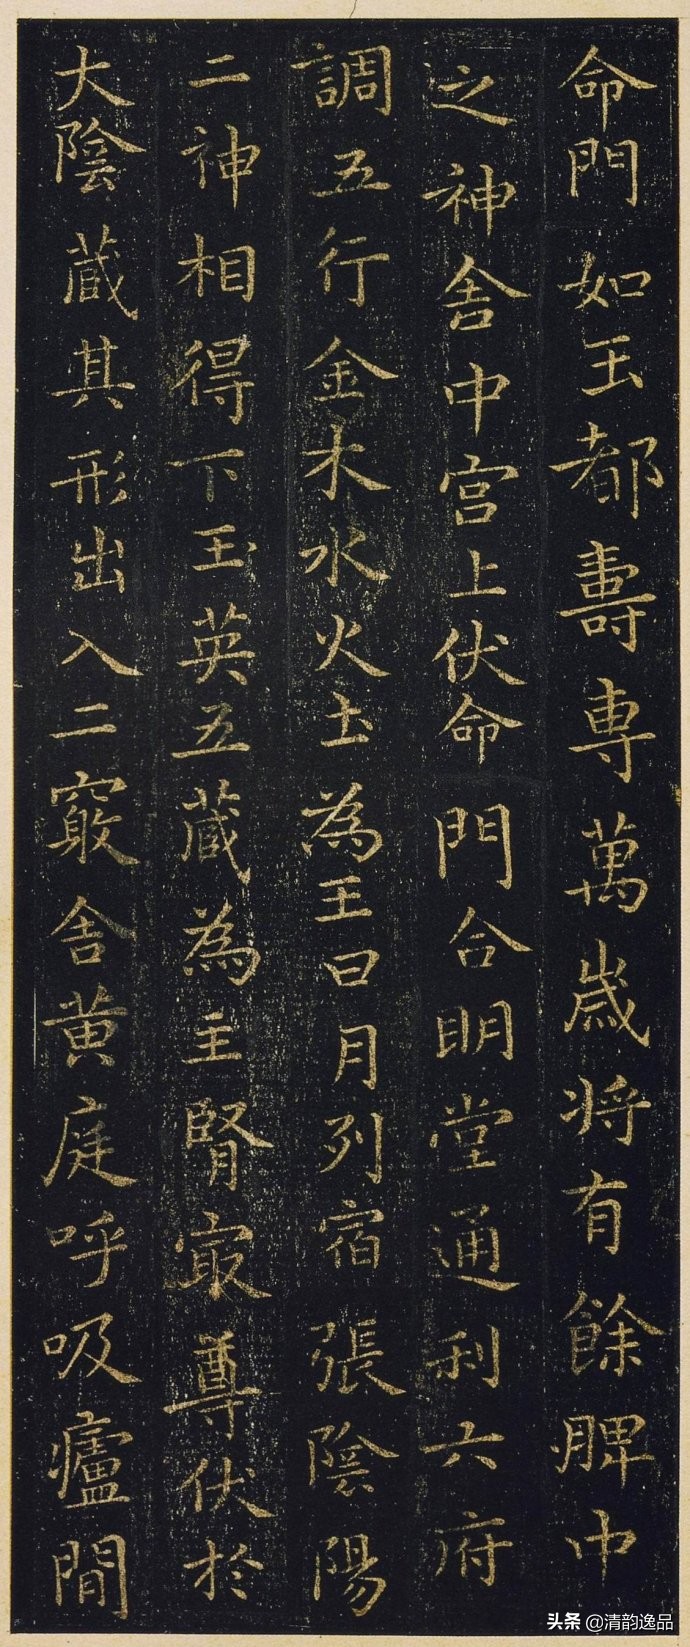 命門如玉都壽専萬嵗将有餘脾中
之神舍中宫上伏命門合明堂通利六府
調五行金木水火土為王日月列宿張陰陽
二神相得下玉英五蔵為主腎冣尊伏於
大陰蔵其形出入二竅舍黄庭呼吸廬間
头条 @清韵逸品